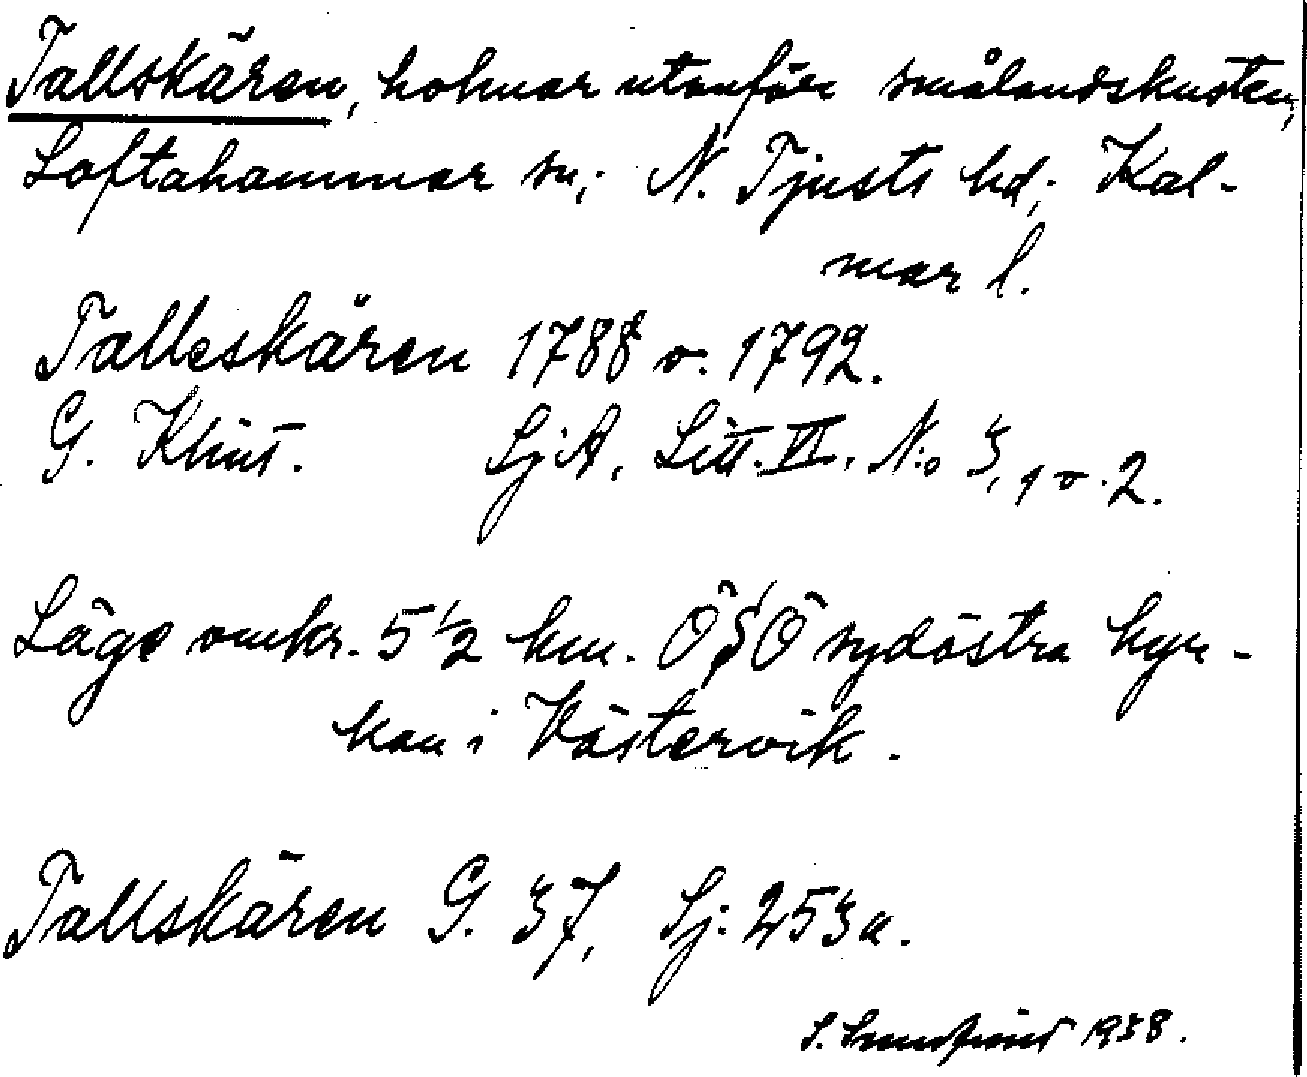 Tallskären, holmar utanför smålandskusten,
Loftahammar sn; N. Tjusts hd; Kal-
mar l.
Talleskären 1788 o. 1792.
G. Klint. SjA, Litt. VI. N:o 3, 1 o. 2.
Läge omkr. 5 1/2 km. ÖSÖ sydöstra kyr-
kan i Västervik.
Tallskären G. 37, Sj: 253a.
S. 1938.